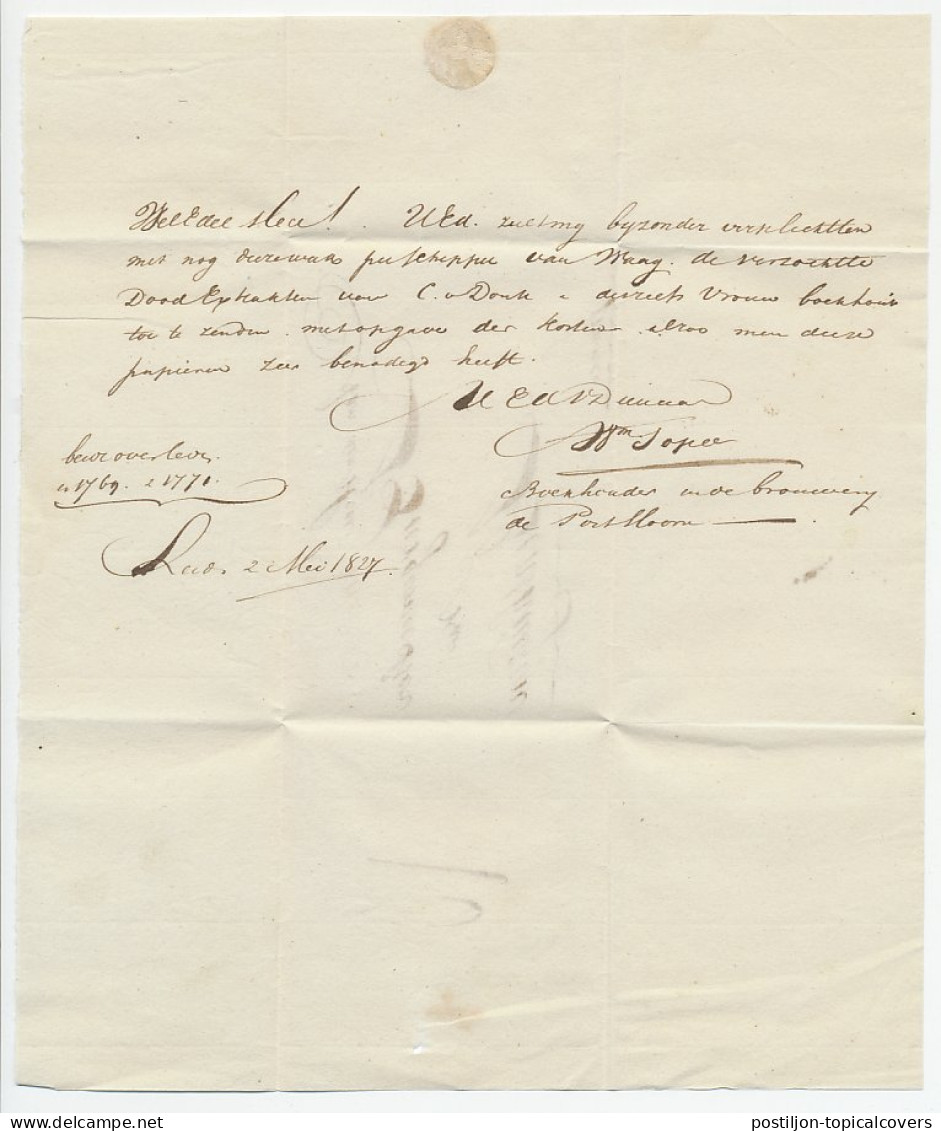 WelEdee Heer! UEd. zult my byzonder verplichtten
met nog dezeweek per schipper van Waag. de verzochtte
Dood Extrakten van C. v Donk & deszelfs Vrouw
toe te zenden. met opgave der kosten. alzoo men deeze
papieren zeer benodigd heeft.
UEd VDienaar
Wm Soper
Boekhouder in de brouwery
de Posthoorn
beide overleden
in 1769. & 1771.
Leid. 2 Mei 1827.
postiljon-topicalcovers